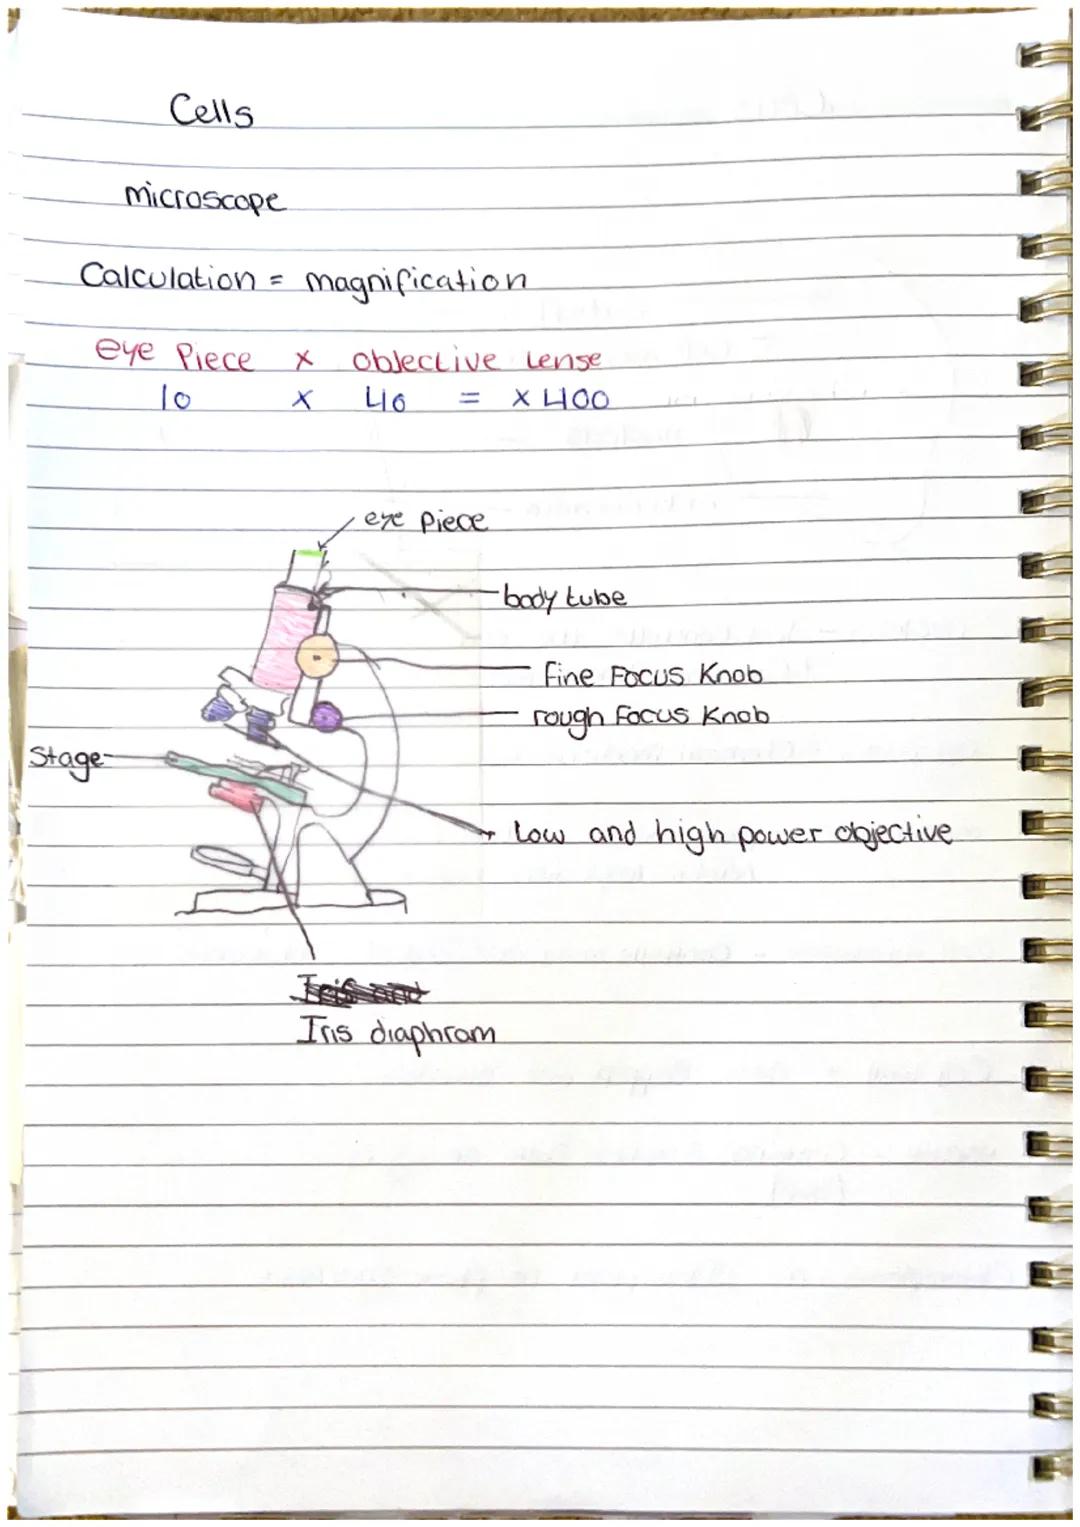 Cells
microscope
Calculation = magnification
eye Piece x objective Lense
10 x 40 = x 400
eye Piece
body tube
fine Focus Knob
rough Focus Knob
Stage
Low and high power objective
Iris and
Iris diaphram